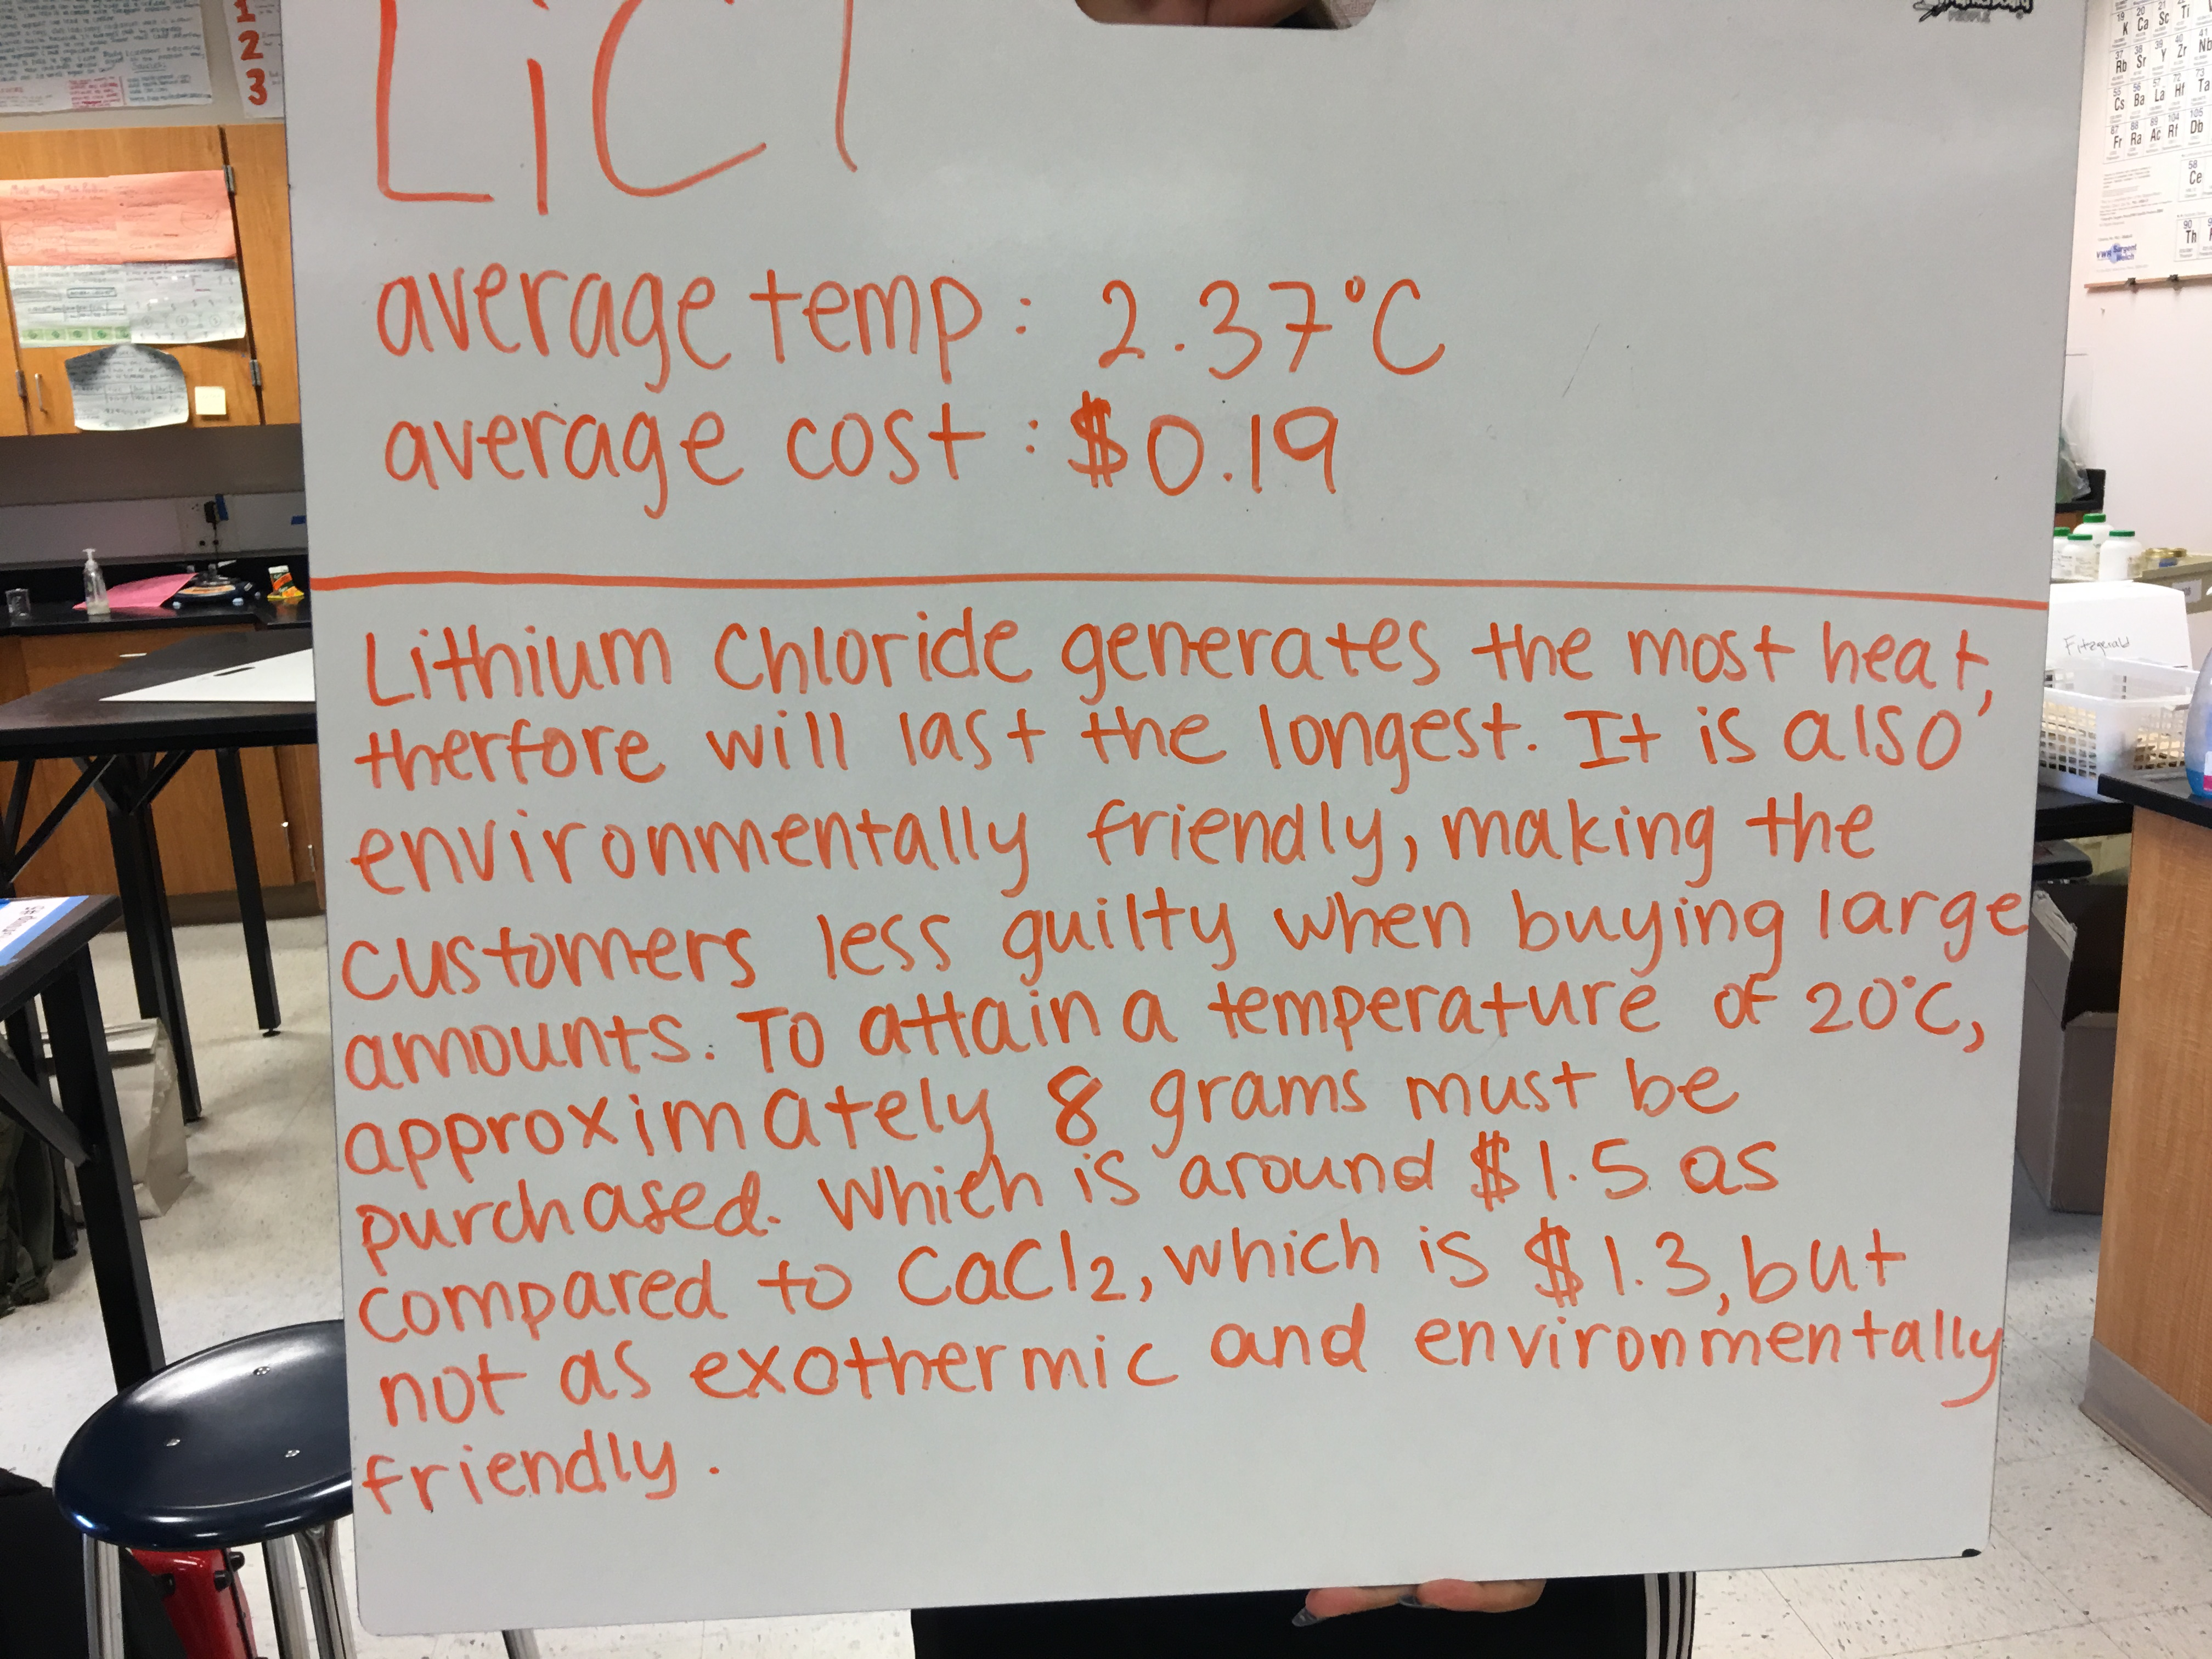 LiCl
average temp: 2.37°C
average cost: $0.19
Lithium Chloride generates the most heat,
therfore will last the longest. It is also
environmentally friendly, making the
customers less guilty when buying large
amounts. To attain a temperature of 20°C,
approximately 8 grams must be
purchased. Which is around $1.5 as
compared to CaCl2, which is $1.3, but
not as exothermic and environmentally
friendly.
1
2
3
Fitzgerald
PEOPLE
19 20 21
K Ca Sc Ti
37 38 39 40 41
Rb Sr Y Zr Nb
55 56 57 72 73
Cs Ba La Hf Ta
87 88 89 104 105
Fr Ra Ac Rf Db
58
Ce
90
Th
VWR Sargent Welch